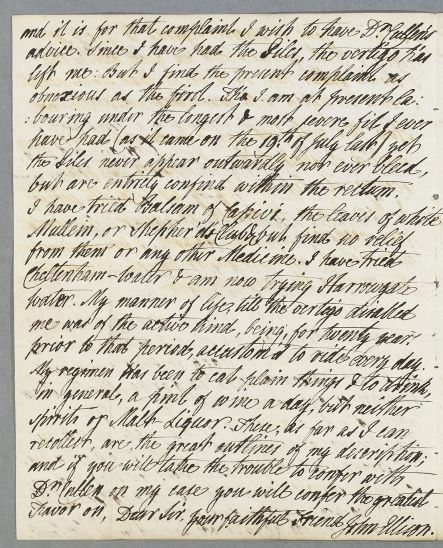 and it is for that complaint I wish to have Dr Cullen's
advice. Since I have had the Piles, the vertigo has
left me: But I find the present complaint as
obnoxious as the first. Tho I am at present la:
:bouring under the longest & most severe fit I ever
have had (as it came on the 19th of July last) yet
the Piles never appear outwardly nor ever bleed,
but are entirely confined within the rectum.
I have tried Balsam of Capivi, the leaves of white
Mullein, or Shepherds Club, but find no relief
from them or any other Medicine. I have tried
Cheltenham-water & am now trying Harrowgate
water. My manner of life, till the vertigo disabled
me was of the active kind, being, for twenty years
prior to that period, accustom'd to ride every day.
My regimen has been to eat plain things & to drink,
in general, a pint of wine a day, but neither
Spirits or Malt Liquor. These, as far as I can
recollect, are the great outlines of my description:
and if you will take the trouble to confer with
Dr Cullen on my case you will confer the greatest
Favor on, Dear Sir, your faithful Friend
John Ellison.